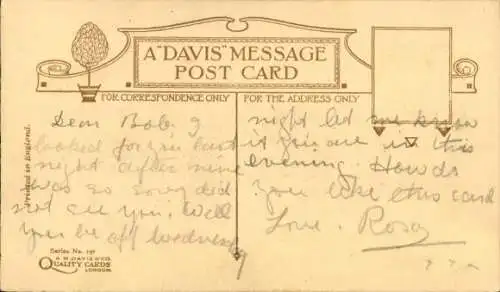 A "DAVIS" MESSAGE
POST CARD
FOR CORRESPONDENCE ONLY
FOR THE ADDRESS ONLY
Printed in England.
Dear Bob I
looked for you last
night after nine
was so sorry did
not see you, Will
you be off Wednesday
night let me know
if you are in this
evening. How do
you like this card
Love. Rosa
Series No. 191
A. M. DAVIS & CO.
QUALITY CARDS
LONDON.